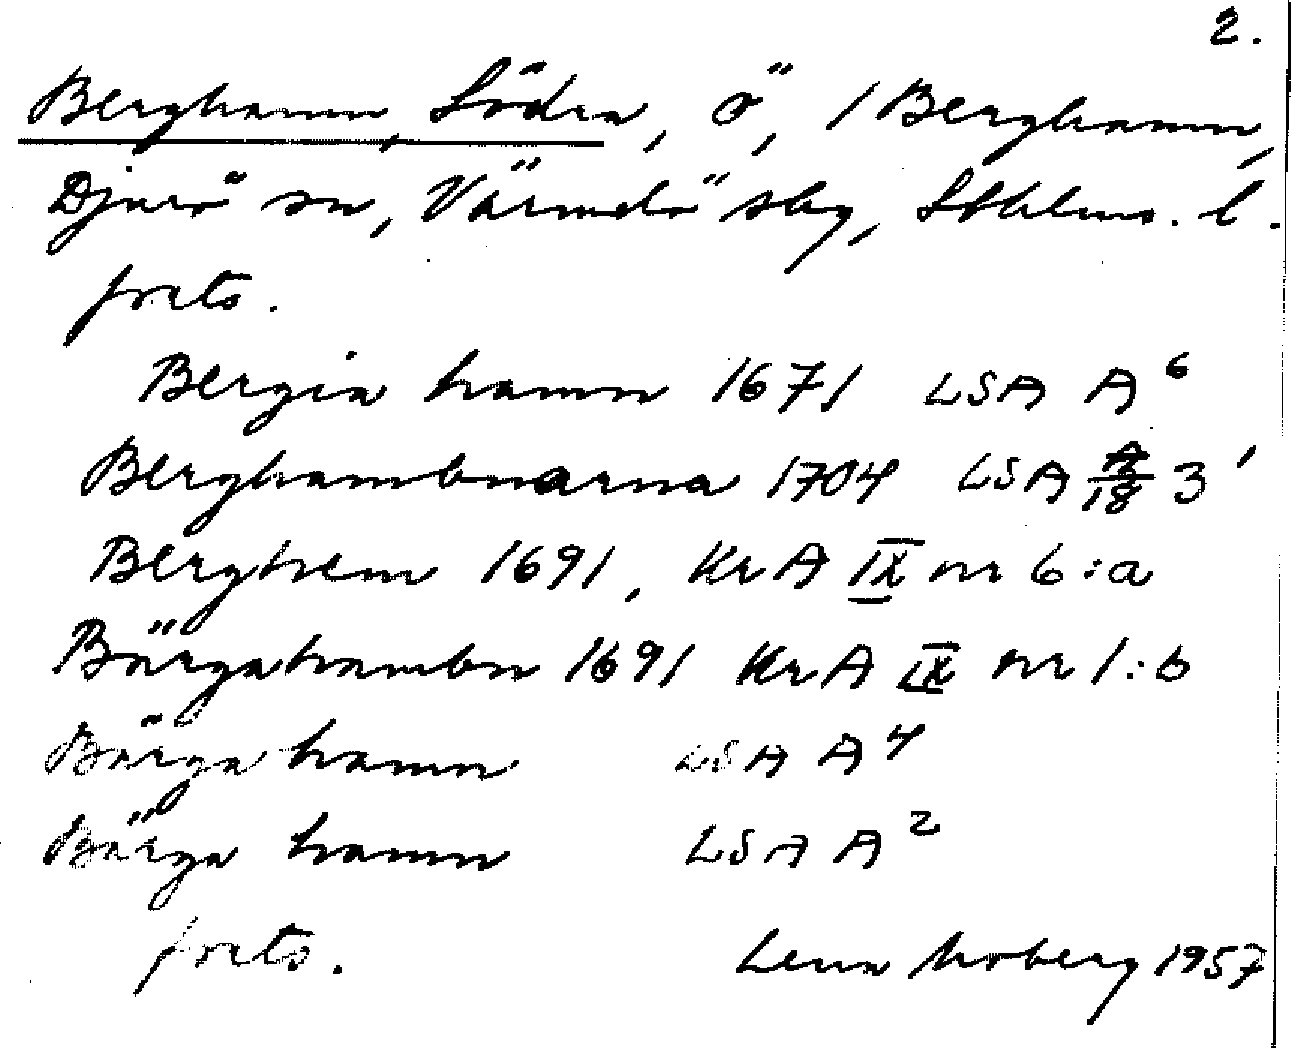 2.
Berghamn, Södra, ö, / Berghamn,
Djurö sn, Värmdö sbg, Sthlms. l.
forts.
Bergia hamn 1671 LSA A⁶
Berghambnarna 1704 LSA A/18 3¹
Berghem 1691, KrA IX nr 6:a
Bärgahambn 1691 KrA IX nr 1:b
Bärga hamn LSA A⁴
Bärga hamn LSA A²
forts. Lena Moberg 1957